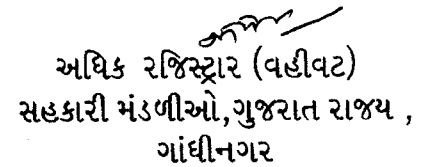 અધિક રજિસ્ટ્રાર (વહીવટ)
સહકારી મંડળીઓ,ગુજરાત રાજય ,
ગાંધીનગર